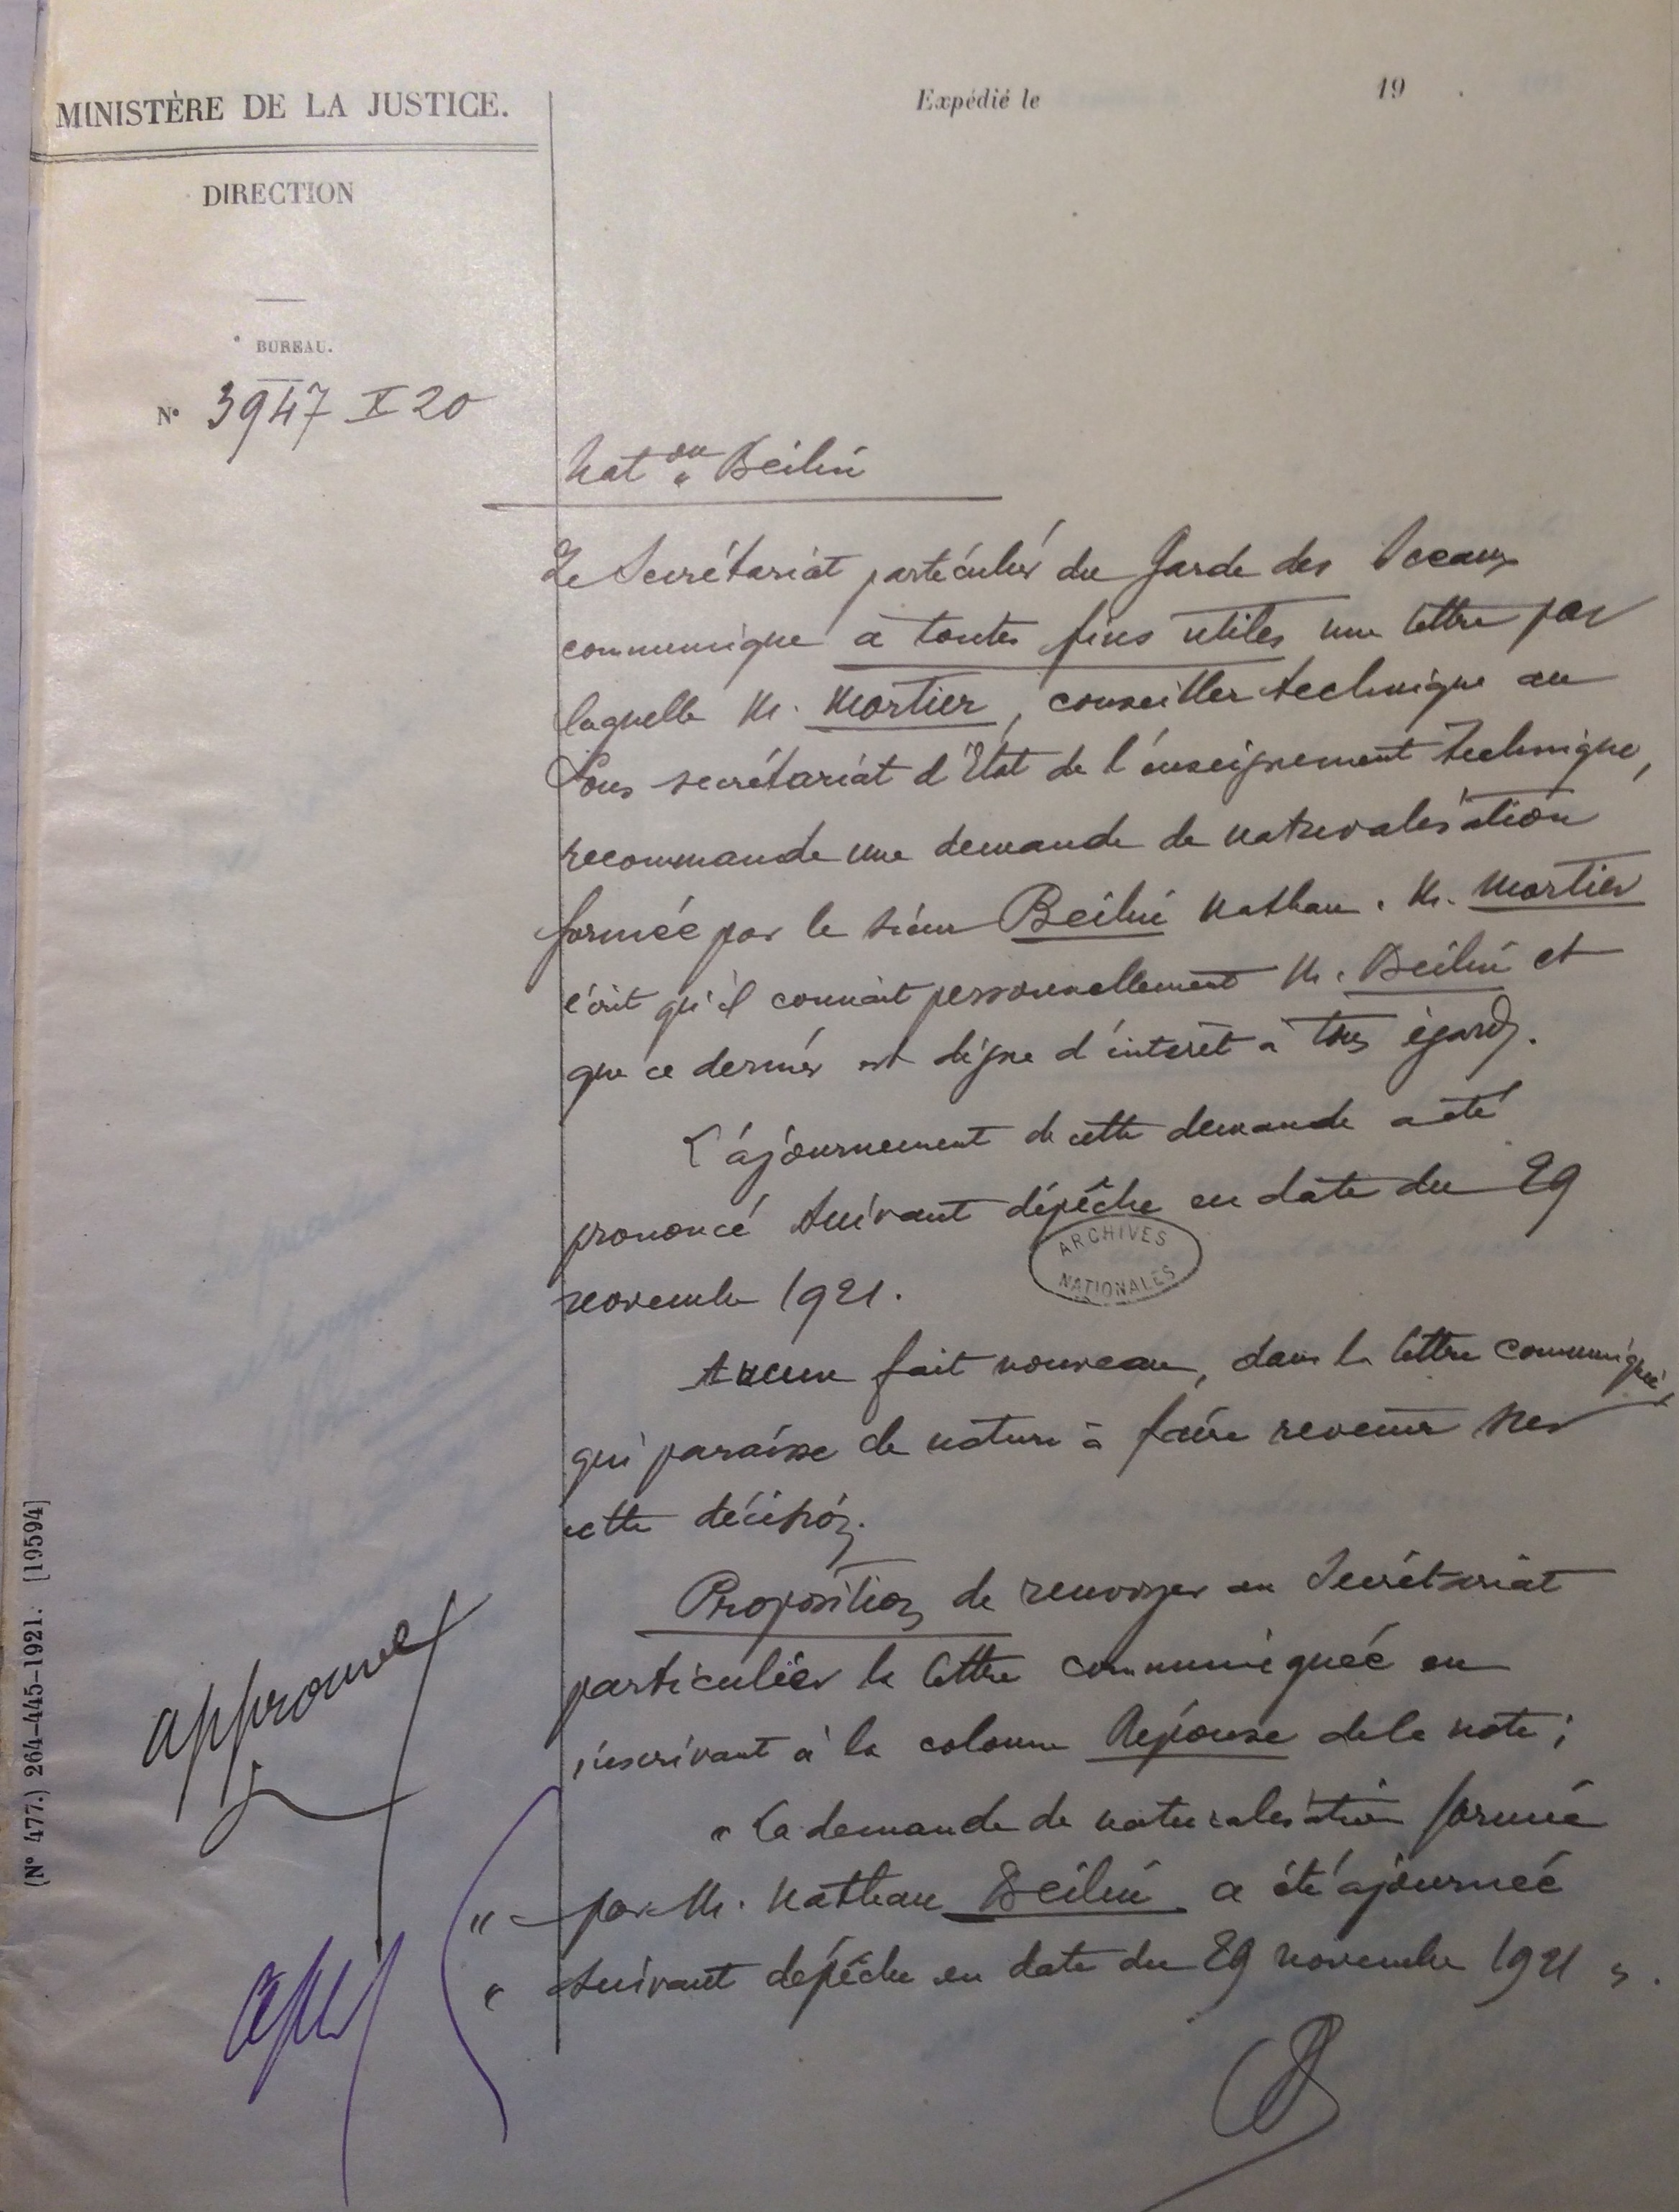 MINISTÈRE DE LA JUSTICE.
Expédié le 19 .
DIRECTION
BUREAU.
N° 3947 X 20
Nat on Beilin
Le Secrétariat particulier du Garde des Sceaux
communique à toutes fins utiles une lettre par
laquelle M. Mortier, conseiller technique au
Sous secrétariat d'Etat de l'enseignement technique,
recommande une demande de naturalisation
formée par le sieur Beilin Nathan. M. Mortier
écrit qu'il connait personnellement M. Beilin et
que ce dernier est digne d'intérêt à tous égards.
L'ajournement de cette demande a été
prononcé suivant dépêche en date du 29
novembre 1921.
ARCHIVES
NATIONALES
Aucun fait nouveau, dans la lettre communiquée,
qui paraisse de nature à faire revenir sur
cette décision.
Proposition de renvoyer au Secrétariat
particulier la lettre communiquée en
inscrivant à la colonne Réponse de la note ;
« La demande de naturalisation formée
" par M. Nathan Beilin a été ajournée
" suivant dépêche en date du 29 novembre 1921 ».
approuvé
(N° 477.) 264-445-1921. [19594]